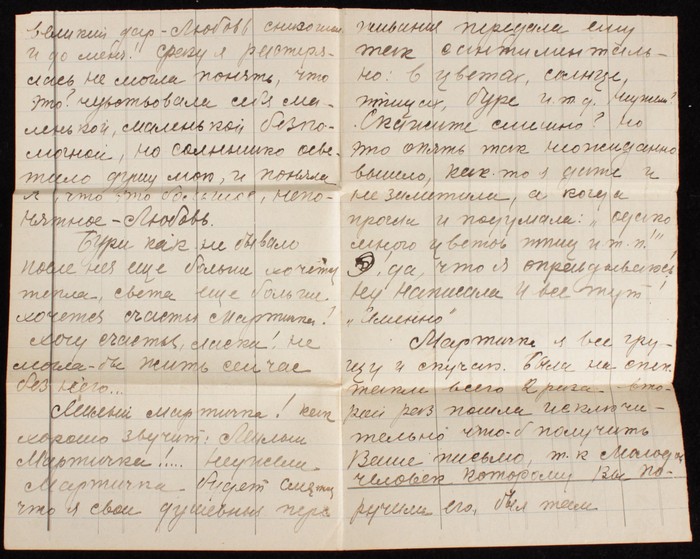 великий дар - Любовь снизошла
и до меня! Сразу я растеря-
лась не могла понять, что
это? чувствовала себя ма-
ленькой, маленькой беспо-
мощной, но солнышко осве-
тило душу мою, и поняла
я, что это большое, непо-
нятное - Любовь.
Бури как не бывало
после нея еще больше хочется
тепла, света еще больше
хочется счастья Мартичка!
Хочу счастья, ласки! не
могла-бы жить сейчас
без него...
Милый Мартичка! как
хорошо звучит: Милый
Мартичка!.... неужели
Мартичка - будет смеяться
что я свои душевные пере
живания передала ему
так сантименталь-
но: в цветах, солнце,
птицах, буре и т.д.
Скажите смешно? но
это опять так неожиданно
вышло, как-то я даже и
не заметила, а когда
прочла и подумала: „однако
много цветов птиц и т.п!"
да, что я оправдываюсь
Ну написала и все тут!
„Именно"
Мартичка я все гру-
щу и скучаю. Была на спек
такли всего 2 раза - вто-
рой раз пошла исключи-
тельно что-б получить
Ваше письмо, т.к Молодой
человек которому Вы по-
ручили его, был там